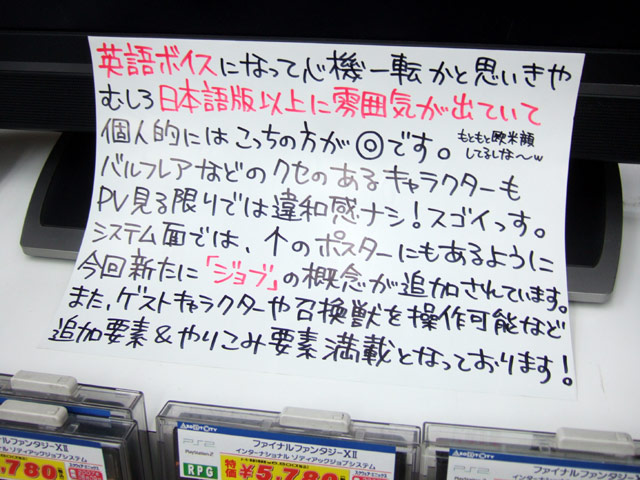 英語ボイスになって心機一転かと思いきや
むしろ日本語版以上に雰囲気が出ていて
個人的にはこっちの方が◎です。もともと欧米顔
してるしな〜w
バルフレアなどのクセのあるキャラクターも
PV見る限りでは違和感ナシ!スゴイっす。
システム面では、↑のポスターにもあるように
今回新たに「ジョブ」の概念が追加されています。
また、ゲストキャラクターや召喚獣を操作可能など
追加要素&やりこみ要素満載となっております!
ナルファンタジーXII
ナル ゾディアックジョブシステム
780
PS2
PlayStation 2
ファイナルファンタジーXII
インターナショナル ゾディアックジョブシステム
RPG
特価
¥5,780
PS2
ファイナルファンタジーXII
インターナショナル ゾディアックジョブシステム